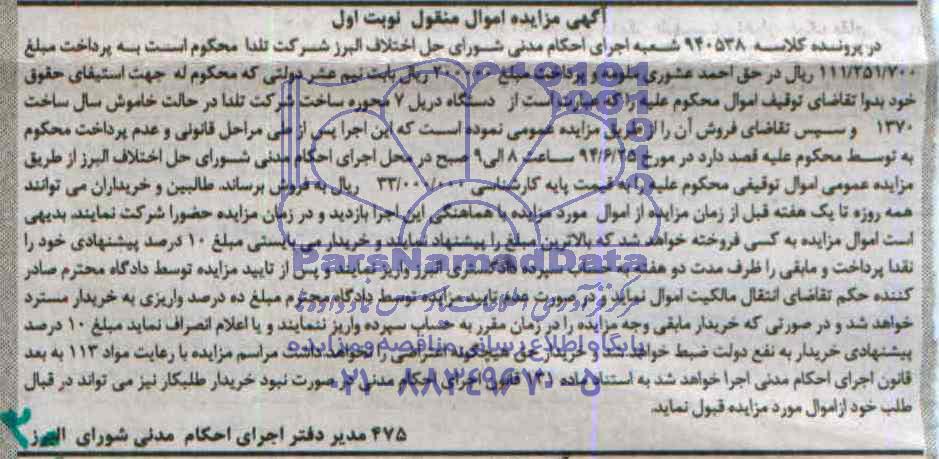 آگهی مزایده اموال منقول نوبت اول
در پرونده کلاسه ۹۴۰۵۳۸ شعبه اجرای احکام مدنی شورای حل اختلاف البرز شرکت تلدا محکوم است به پرداخت مبلغ
۱۱۱/۲۵۱/۷۰۰ ریال در حق احمد عشوری ملومه و پرداخت مبلغ ۲۰۰/۰۰۰ ریال بابت نیم عشر دولتی که محکوم له جهت استیفای حقوق
خود بدوا تقاضای توقیف اموال محکوم علیه را که عبارت است از دستگاه دریل ۷ محوره ساخت شرکت تلدا در حالت خاموش سال ساخت
۱۳۷۰ و سپس تقاضای فروش آن را از طریق مزایده عمومی نموده است که این اجرا پس از طی مراحل قانونی و عدم پرداخت محکوم
به توسط محکوم علیه قصد دارد در مورخ ۹۴/۶/۲۵ ساعت ۸ الی ۹ صبح در محل اجرای احکام مدنی شورای حل اختلاف البرز از طریق
مزایده عمومی اموال توقیفی محکوم علیه را به قیمت پایه کارشناسی ۳۳/۰۰۰/۰۰۰ ریال به فروش برساند. طالبین و خریداران می توانند
همه روزه تا یک هفته قبل از زمان مزایده از اموال مورد مزایده با هماهنگی این اجرا بازدید و در زمان مزایده حضورا شرکت نمایند. بدیهی
است اموال مزایده به کسی فروخته خواهد شد که بالاترین مبلغ را پیشنهاد نمایند و خریدار می بایستی مبلغ ۱۰ درصد پیشنهادی خود را
نقدا پرداخت و مابقی را ظرف مدت دو هفته به حساب سپرده دادگستری البرز واریز نمایند و پس از تایید مزایده توسط دادگاه محترم صادر
کننده حکم تقاضای انتقال مالکیت اموال نماید و در صورت عدم تایید مزایده توسط دادگاه محترم مبلغ ده درصد واریزی به خریدار مسترد
خواهد شد و در صورتی که خریدار مابقی وجه مزایده را در زمان مقرر به حساب سپرده واریز ننمایند و یا اعلام انصراف نماید مبلغ ۱۰ درصد
پیشنهادی خریدار به نفع دولت ضبط خواهد شد و خریدار حق هیچگونه اعتراضی را نخواهد داشت. مراسم مزایده با رعایت مواد ۱۱۳ به بعد
قانون اجرای احکام مدنی اجرا خواهد شد به استناد ماده ۱۳۱ قانون اجرای احکام مدنی در صورت نبود خریدار طلبکار نیز می تواند در قبال
طلب خود از اموال مورد مزایده قبول نماید.
۴۷۵ مدیر دفتر اجرای احکام مدنی شورای البرز
ParsNamadData
پایگاه اطلاع رسانی مناقصه و مزایده
۰۲۱-۸۸۳۴۹۶۷۰-۵